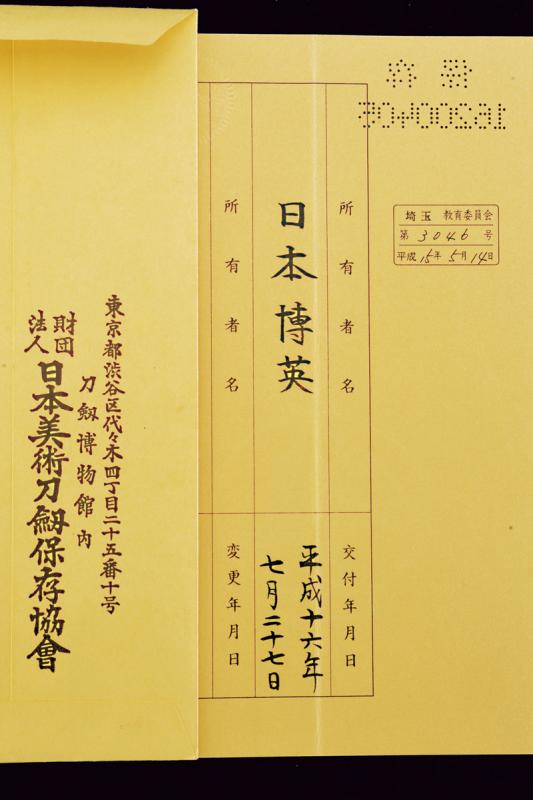 埼玉 教育委員会
第 3046 号
平成 15年 5月 14日
所有者名
交付年月日
日本博英
平成十六年
七月二十七日
所有者名
変更年月日
東京都渋谷区代々木四丁目二十五番十号
刀劔博物館内
財団法人
日本美術刀劔保存協會